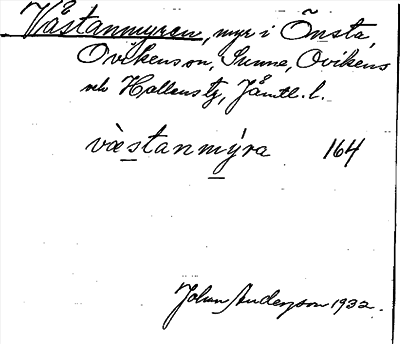 Västanmyren, myr i Önsta,
Ovikens sn, Sunne, Ovikens
och Hallens tg, Jämtl. l.
væstanmýra 164
Johan Anderson 1932.